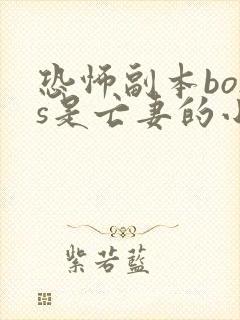 恐怖副本bos
s是亡妻的小
紫若蓝